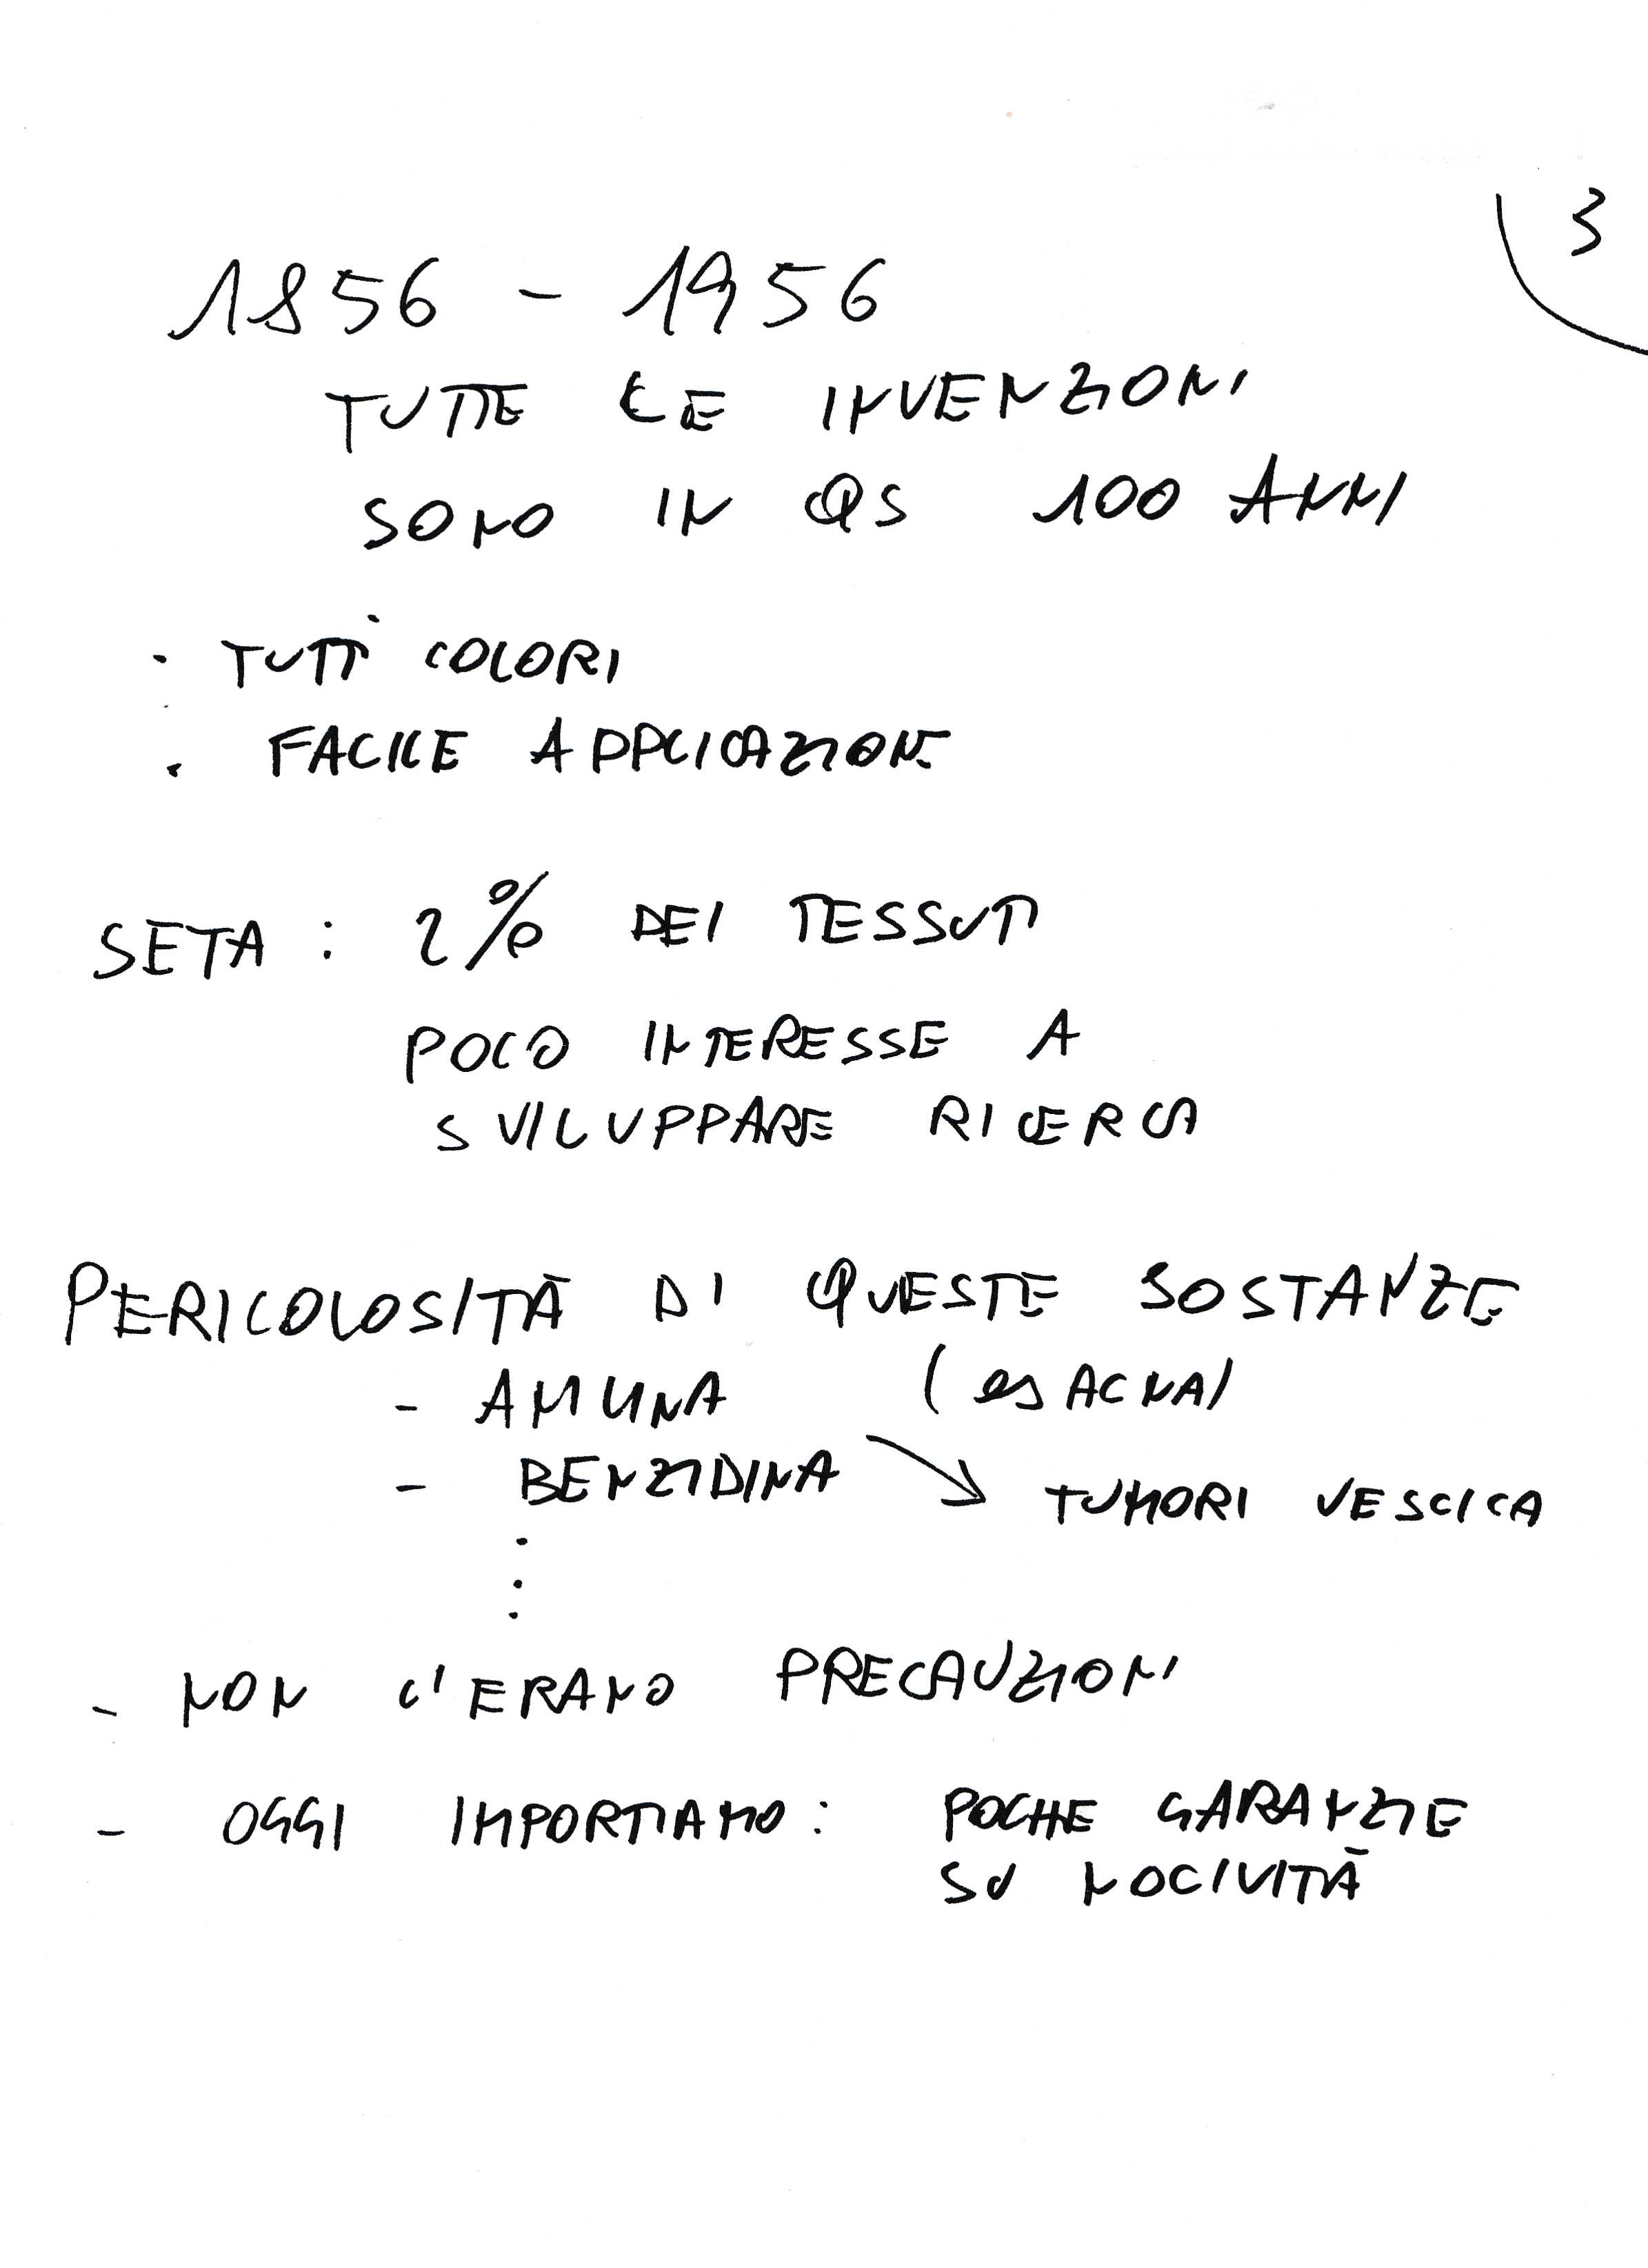 3
1856 - 1956
TUTTE LE INVENZIONI
SONO IN QS 100 ANNI
· TUTTI COLORI
· FACILE APPLICAZIONE
SETA : 2% DEI TESSUTI
POCO INTERESSE A
SVILUPPARE RICERCA
PERICOLOSITÀ DI QUESTE SOSTANZE
- AMINA (es ACNA)
- BENZIDINA → TUMORI VESCICA
⋮
- NON C'ERANO PRECAUZIONI
- OGGI IMPORTIAMO : POCHE GARANZIE
SU NOCIVITÀ